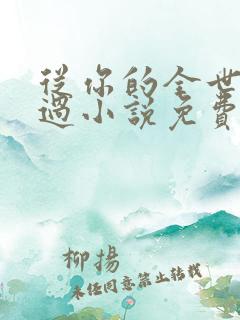 從你的全世
過小說免費
柳揚
未經同意禁止轉載